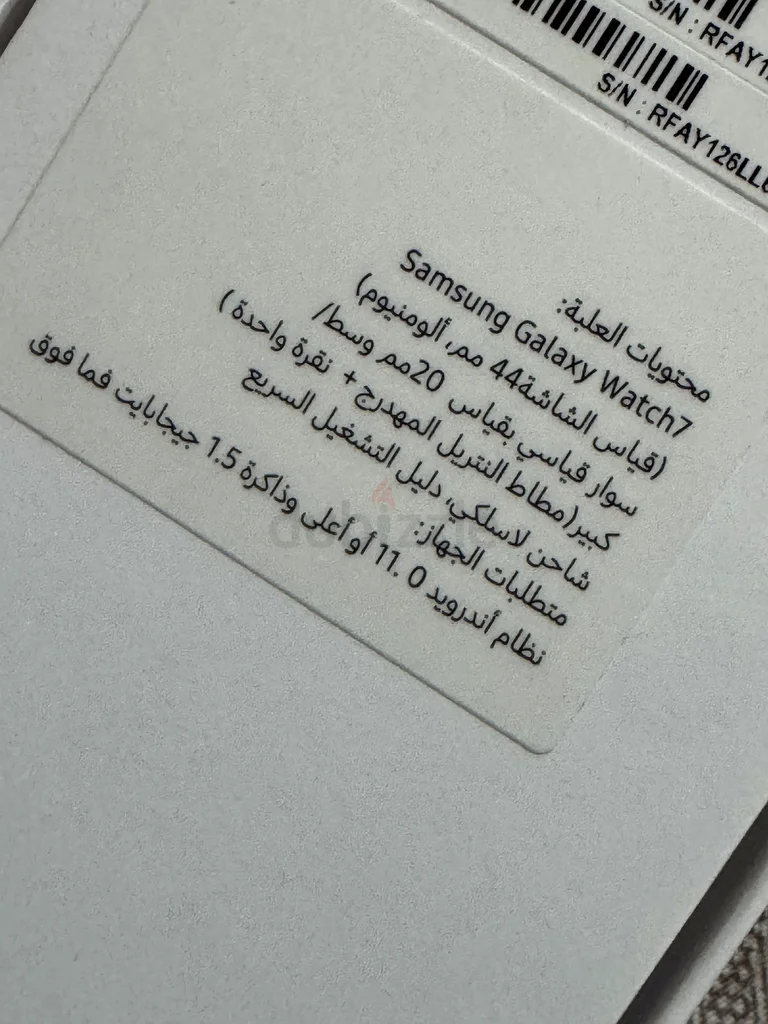 S/N : RFAY1
S/N : RFAY126LL6
محتويات العلبة:
Samsung Galaxy Watch7
(قياس الشاشة44 مم, ألومنيوم)
سوار قياسي بقياس 20مم وسط/
كبير(مطاط النتريل المهدرج+ نقرة واحدة )
شاحن لاسلكي، دليل التشغيل السريع
متطلبات الجهاز:
نظام أندرويد 11. 0 أو أعلى وذاكرة 1.5 جيجابايت فما فوق
dubizzle